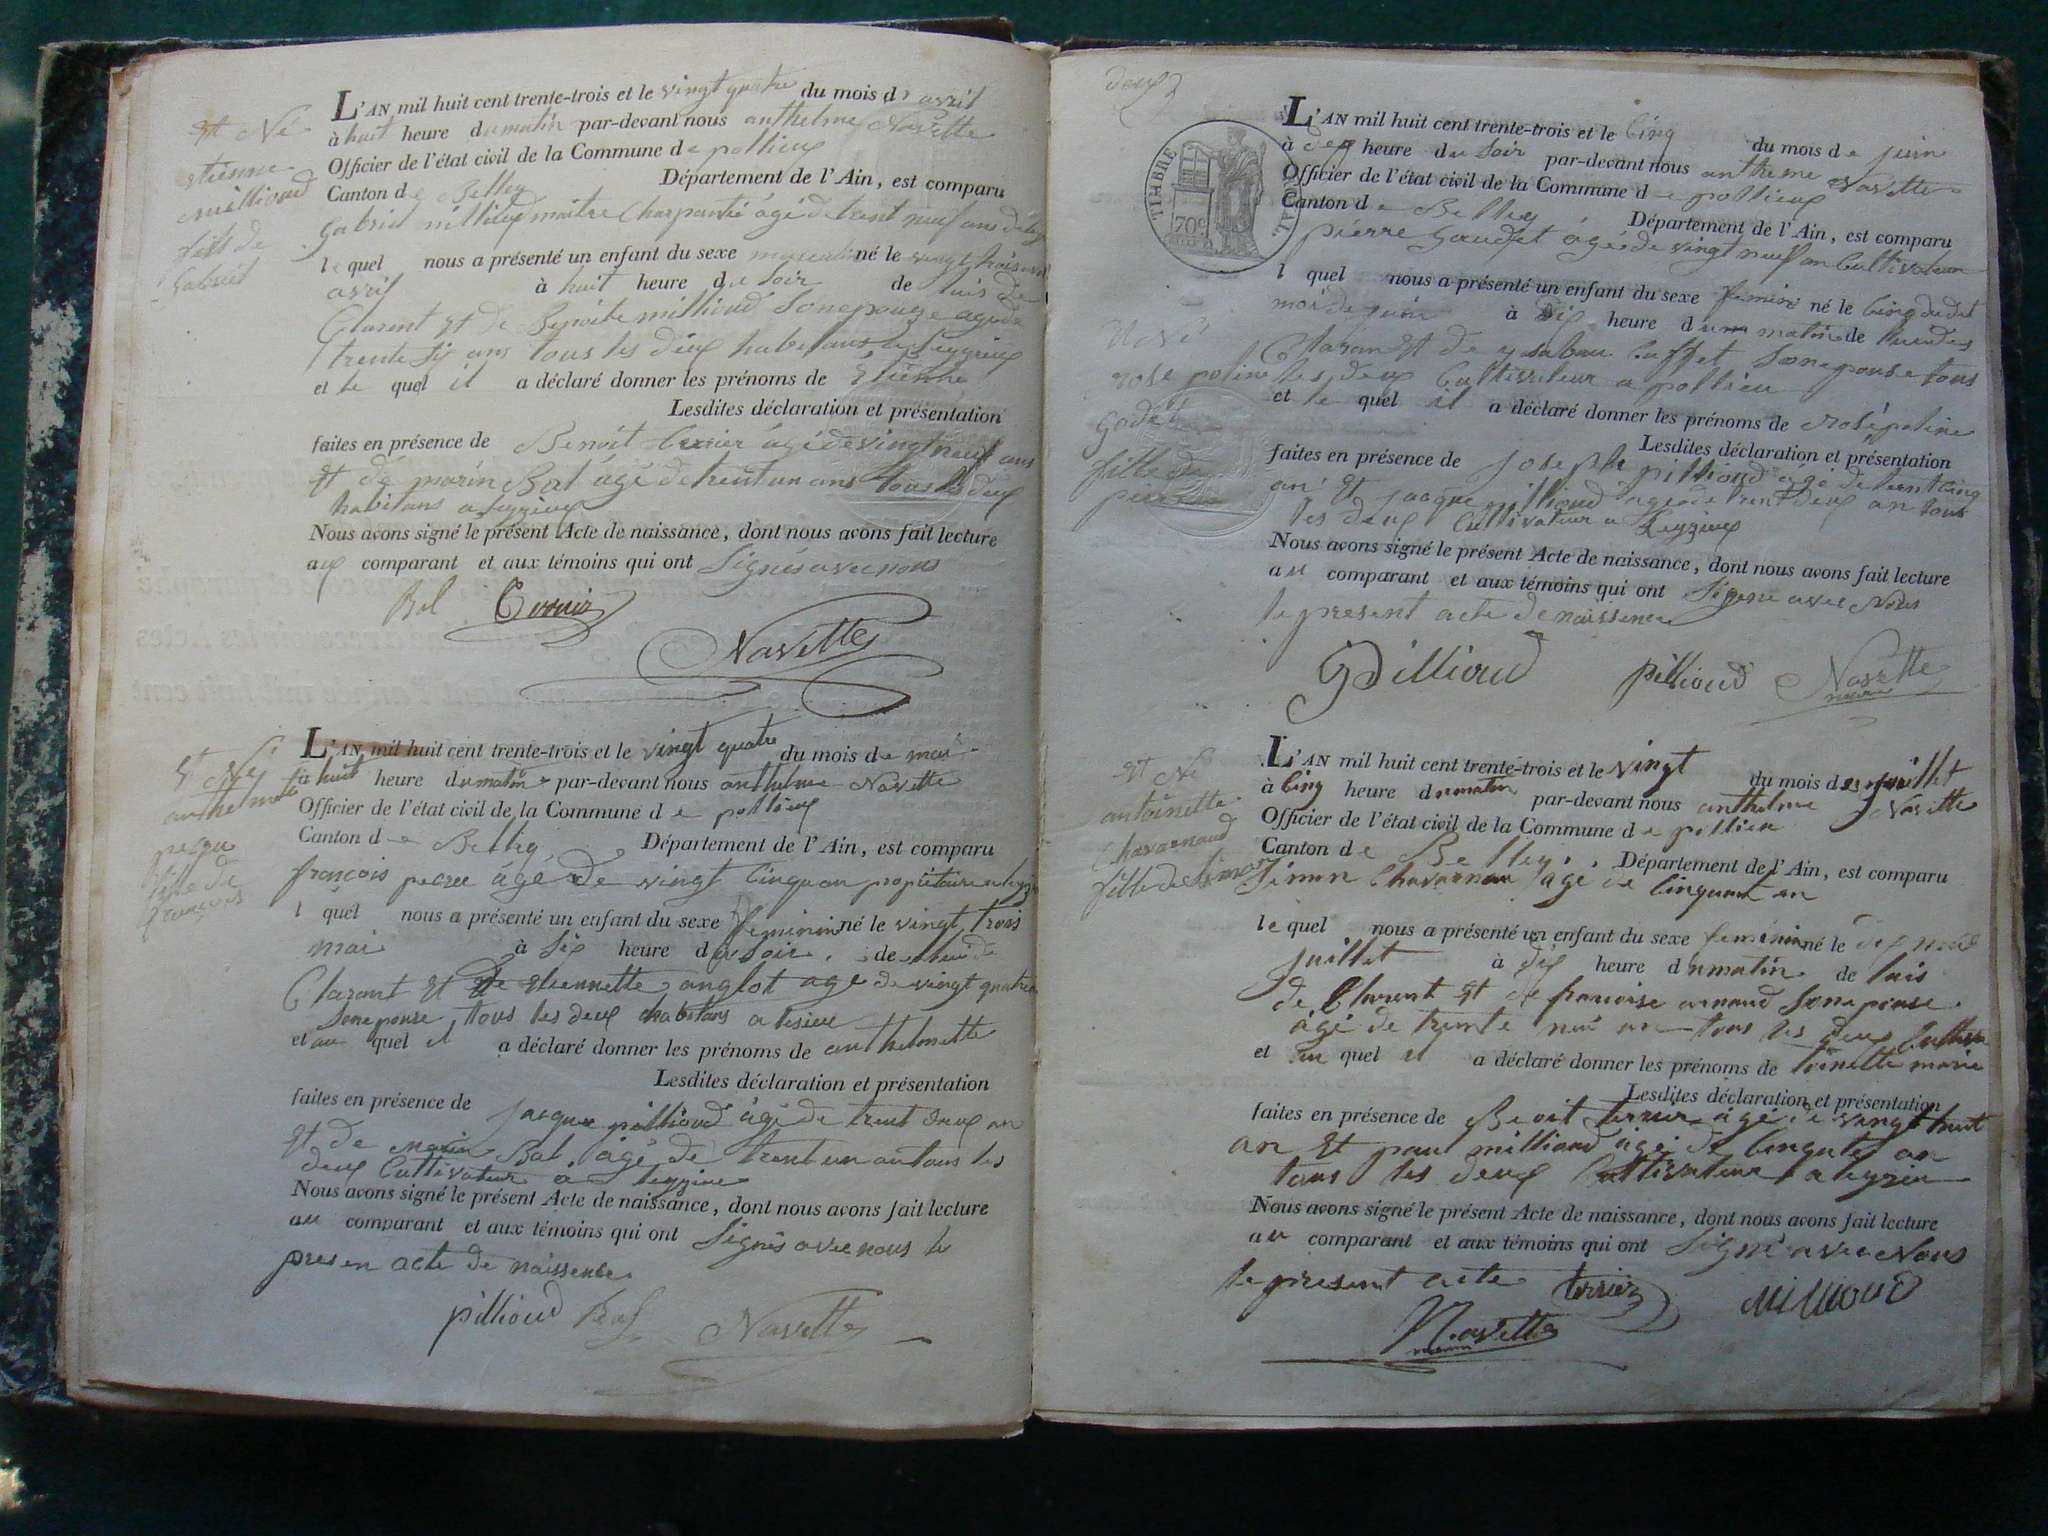 L'AN mil huit cent trente-trois et le vingt quatre du mois d avril
à huit heure du matin par-devant nous anthelme Navette
Officier de l'état civil de la Commune de pollieu
Canton de Belley Département de l'Ain, est comparu
gabriel maitre Charpantié âgé de trent neuf ans
lequel nous a présenté un enfant du sexe masculin né le vingt trois
avril à huit heure du soir de luis De
Clarent et de Benoite millioud Son epouze agé de
trente six ans tous les deux habitans
et le quel il a déclaré donner les prénoms de Etienne
Lesdites déclaration et présentation
faites en présence de Benoit terrier âgé de vingt neuf ans
et de marin Bal âgé de trent un ans tous les deux
habitans a leyzieu
Nous avons signé le présent Acte de naissance, dont nous avons fait lecture
aux comparant et aux témoins qui ont Signés avec nous
Bal Terrier
Navette
Et Né
etienne
millioud
fils de
gabriel
L'AN mil huit cent trente-trois et le vingt quatre du mois de mai
à huit heure du matin par-devant nous anthelme Navette
Officier de l'état civil de la Commune de pollieu
Canton de Belley Département de l'Ain, est comparu
francois âgé de vingt cinque an propietaire a
l quel nous a présenté un enfant du sexe feminin né le vingt trois
mai à Six heure du soir de lui de
Clarant et de etiennette anglot age de vingt quatre
Son epouse, tous les deux habitans a
et au quel il a déclaré donner les prénoms de anthelmette
Lesdites déclaration et présentation
faites en présence de jacque pillioud âgé de trent deux an
Et de marin Bal âgé de trent un an tous les
deux Cultivateur à leyzieu
Nous avons signé le présent Acte de naissance, dont nous avons fait lecture
au comparant et aux témoins qui ont Signés avec nous le
presen acte de naissence
pillioud Bal Navette
Et Né
anthelmette
fille de
francois
deux
TIMBRE ROYAL
70c
L'AN mil huit cent trente-trois et le Cinq du mois de juin
à six heure du Soir par-devant nous antheme Navette
Officier de l'état civil de la Commune de pollieu
Canton de Belley Département de l'Ain, est comparu
pierre Gaudet âgé de vingt neuf an Cultivateur
l quel nous a présenté un enfant du sexe feminin né le Cinq dudit
moi de juin à Dix heure du matin de
Claran et de ysabau Cuffet Son epouse tous
les deux Cultivateur a pollieu
et le quel il a déclaré donner les prénoms de rose poline
Lesdites déclaration et présentation
faites en présence de Joseph pillioud âgé de trent cinq
an Et jacque pillioud âgé de trent deux an tous
les deux Cultivateur a Leyzieu
Nous avons signé le présent Acte de naissance, dont nous avons fait lecture
au comparant et aux témoins qui ont Signé avec Nous
le present acte de naissence
Pillioud pillioud Navette
maire
rose poline
godet
fille de
pierre
L'AN mil huit cent trente-trois et le vingt du mois de juillet
à Cinq heure du matin par-devant nous anthelme Navette
Officier de l'état civil de la Commune de pollieu
Canton de Belley Département de l'Ain, est comparu
Simon Chavarnau âgé de Cinquant an
lequel nous a présenté un enfant du sexe feminin né le dix neuf
juillet à dix heure du matin de luis
de Clarent Et de francoise arnaud Son epouse
âgé de trente neuf an tous les deux
et au quel il a déclaré donner les prénoms de toinette marie
Lesdites déclaration et présentation
faites en présence de Benoit terrier âgé de vingt huit
an Et paul millioud âgé de Cinqute an
tous les deux Cultivateur a leyzieu
Nous avons signé le présent Acte de naissance, dont nous avons fait lecture
au comparant et aux témoins qui ont Signé avec Nous
le present acte terrier Millioud
Navette
maire
Et Né
antoinette
Chavarnaud
fille de Simon